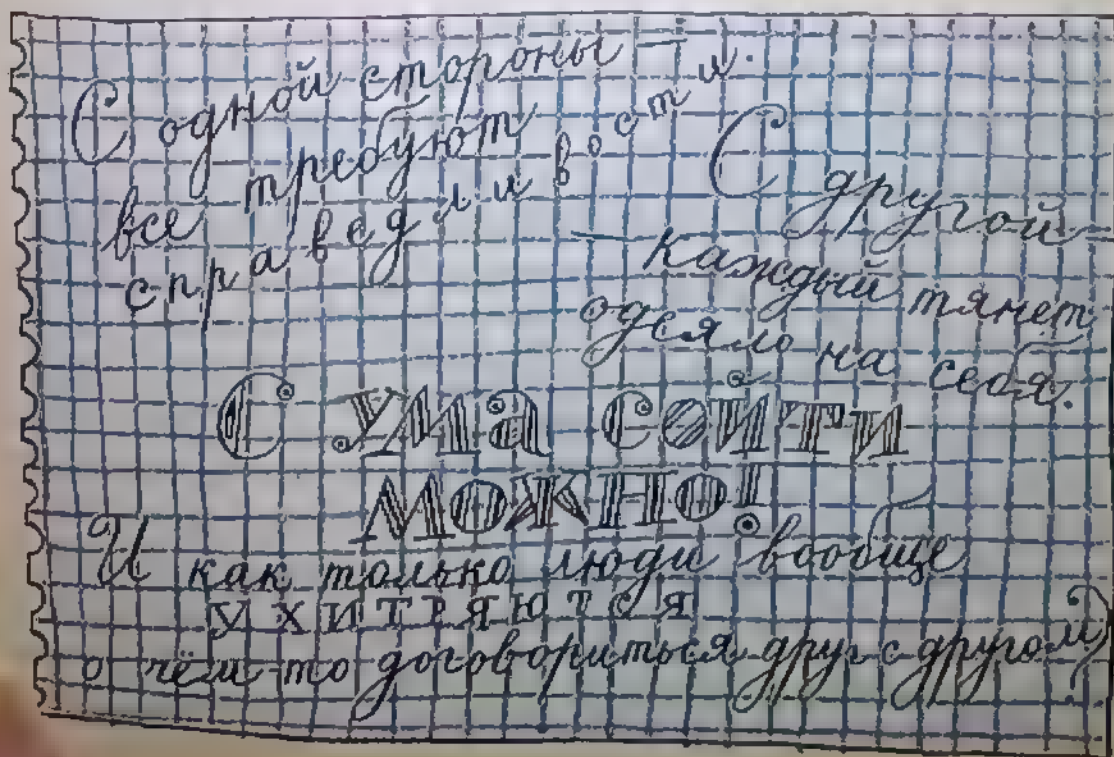 С одной стороны —
все требуют
справедливости.
С другой —
— каждый тянет
одеяло на себя.
С ума сойти
можно!
И как только люди вообще
УХИТРЯЮТСЯ
о чём-то договориться друг с другом?